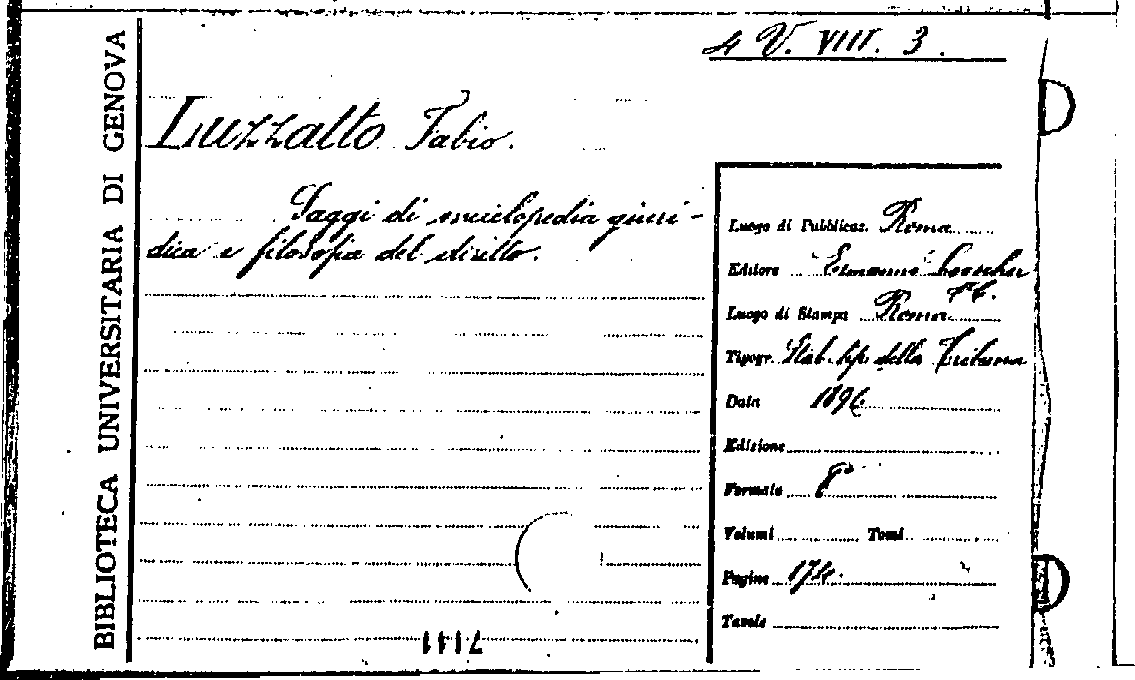 4 V. VIII. 3.
BIBLIOTECA UNIVERSITARIA DI GENOVA
Luzzatto Fabio.
Saggi di enciclopedia giuri-
dica e filosofia del diritto.
Luogo di Pubblicaz. Roma
Editore Ermanno Loescher
Luogo di Stampa Roma
Tipogr. Stab. tip. della Tribuna
Data 1896
Edizione
Formato 8°
Volumi Tomi
Pagine 174.
Tavole